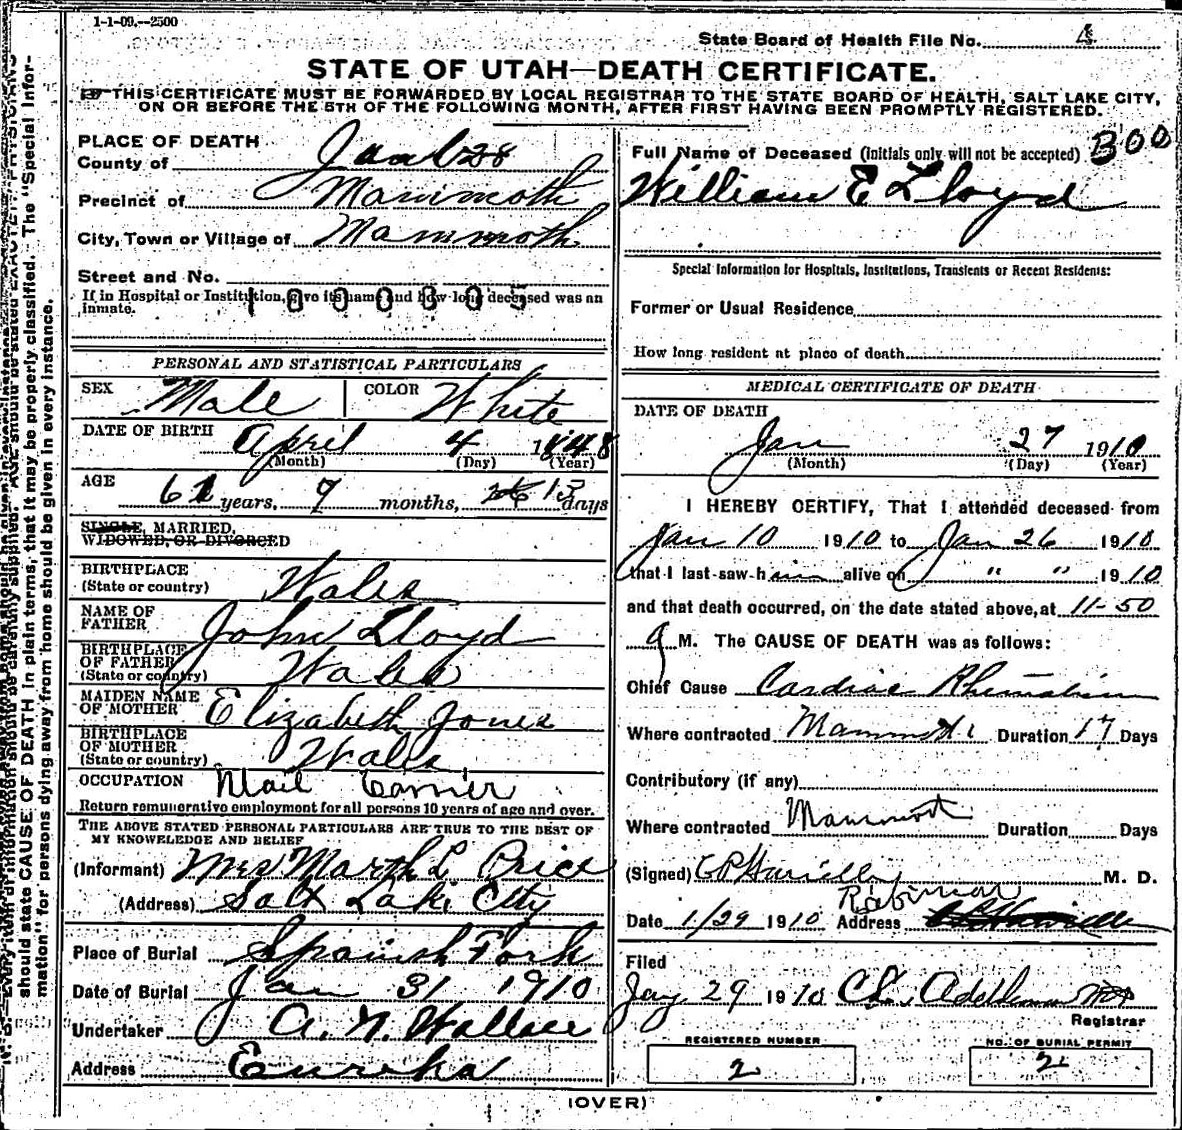 1-1-09.--2500
State Board of Health File No. 4
STATE OF UTAH—DEATH CERTIFICATE.
THIS CERTIFICATE MUST BE FORWARDED BY LOCAL REGISTRAR TO THE STATE BOARD OF HEALTH, SALT LAKE CITY,
ON OR BEFORE THE 5TH OF THE FOLLOWING MONTH, AFTER FIRST HAVING BEEN PROMPTLY REGISTERED.
should state CAUSE OF DEATH in plain terms, that it may be properly classified. The "Special Infor-
mation" for persons dying away from home should be given in every instance.
PLACE OF DEATH
County of Juab 28
Precinct of Mammoth
City, Town or Village of Mammoth
Street and No.
If in Hospital or Institution, give its name and how long deceased was an
Inmate.
1000805
PERSONAL AND STATISTICAL PARTICULARS
SEX Male COLOR White
DATE OF BIRTH April 4 1848
(Month) (Day) (Year)
AGE 61 years, 9 months, 26 13 days
SINGLE, MARRIED,
WIDOWED, OR DIVORCED
BIRTHPLACE
(State or country) Wales
NAME OF
FATHER John Lloyd
BIRTHPLACE
OF FATHER
(State or country) Wales
MAIDEN NAME
OF MOTHER Elizabeth Jones
BIRTHPLACE
OF MOTHER
(State or country) Wales
OCCUPATION Mail Carrier
Return remunerative employment for all persons 10 years of age and over.
THE ABOVE STATED PERSONAL PARTICULARS ARE TRUE TO THE BEST OF
MY KNOWLEDGE AND BELIEF
(Informant) Mrs Marth L Price
(Address) Salt Lake City
Place of Burial Spanish Fork
Date of Burial Jan 31 1910
Undertaker A. N. Wallace
Address Eureka
Full Name of Deceased (Initials only will not be accepted) 300
William E Lloyd
Special Information for Hospitals, Institutions, Transients or Recent Residents:
Former or Usual Residence
How long resident at place of death
MEDICAL CERTIFICATE OF DEATH
DATE OF DEATH
Jan 27 1910
(Month) (Day) (Year)
I HEREBY CERTIFY, That I attended deceased from
Jan 10 1910 to Jan 26 1910
that I last saw him alive on " " 1910
and that death occurred, on the date stated above, at 11-50
M. The CAUSE OF DEATH was as follows:
Chief Cause Cardiac Rhumatism
Where contracted Mammoth Duration 17 Days
Contributory (if any)
Where contracted Mammoth Duration Days
(Signed) M. D.
Robinson
Date 1/29 1910 Address
Filed
Jay 29 1910
Registrar
REGISTERED NUMBER
2
NO. OF BURIAL PERMIT
2
(OVER)